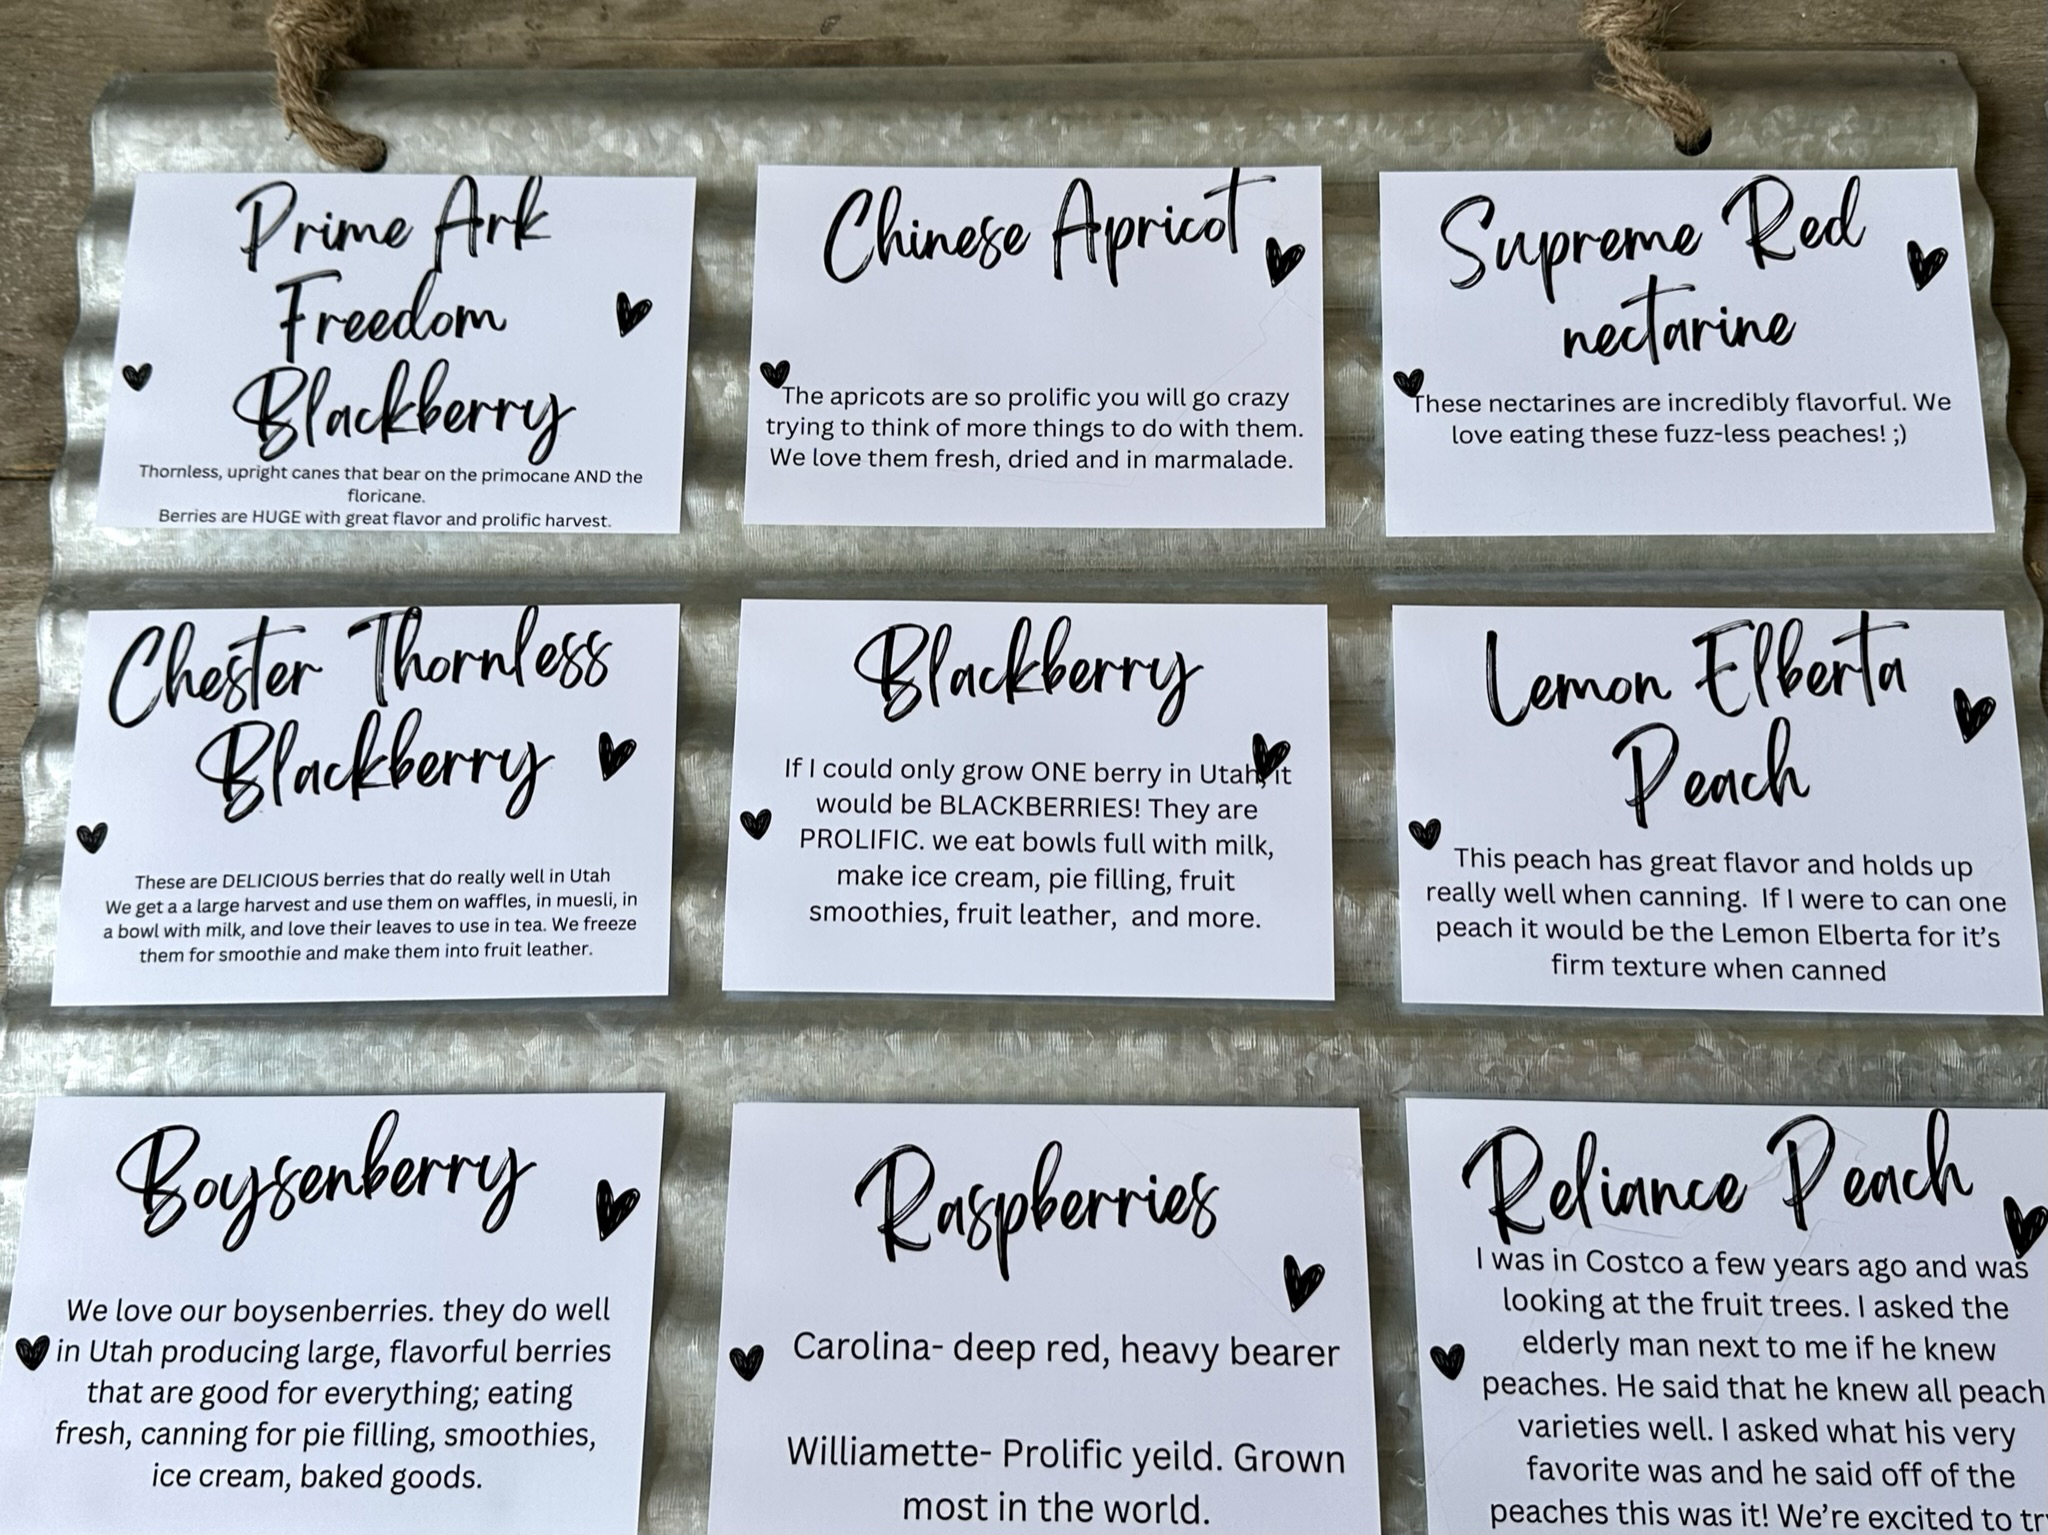 Prime Ark
Freedom
Blackberry
Thornless, upright canes that bear on the primocane AND the
floricane.
Berries are HUGE with great flavor and prolific harvest.
Chinese Apricot
The apricots are so prolific you will go crazy
trying to think of more things to do with them.
We love them fresh, dried and in marmalade.
Supreme Red
nectarine
These nectarines are incredibly flavorful. We
love eating these fuzz-less peaches! ;)
Chester Thornless
Blackberry
These are DELICIOUS berries that do really well in Utah
We get a a large harvest and use them on waffles, in muesli, in
a bowl with milk, and love their leaves to use in tea. We freeze
them for smoothie and make them into fruit leather.
Blackberry
If I could only grow ONE berry in Utah, it
would be BLACKBERRIES! They are
PROLIFIC. we eat bowls full with milk,
make ice cream, pie filling, fruit
smoothies, fruit leather, and more.
Lemon Elberta
Peach
This peach has great flavor and holds up
really well when canning. If I were to can one
peach it would be the Lemon Elberta for it's
firm texture when canned
Boysenberry
We love our boysenberries. they do well
in Utah producing large, flavorful berries
that are good for everything; eating
fresh, canning for pie filling, smoothies,
ice cream, baked goods.
Raspberries
Carolina- deep red, heavy bearer
Williamette- Prolific yeild. Grown
most in the world.
Reliance Peach
I was in Costco a few years ago and was
looking at the fruit trees. I asked the
elderly man next to me if he knew
peaches. He said that he knew all peach
varieties well. I asked what his very
favorite was and he said off of the
peaches this was it! We're excited to